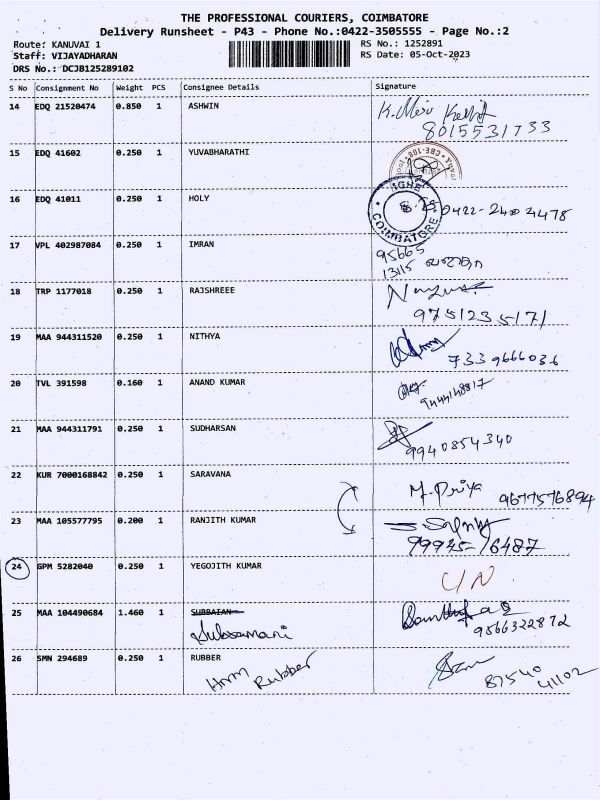 THE PROFESSIONAL COURIERS, COIMBATORE
Delivery Runsheet - P43 - Phone No.:0422-3505555 - Page No.:2
Route: KANUVAI 1 RS No.: 1252891
Staff: VIJAYADHARAN RS Date: 05-Oct-2023
DRS No.: DCJB125289102
S No Consignment No Weight PCS Consignee Details Signature
14 EDQ 21520474 0.850 1 ASHWIN
8015531733
15 EDQ 41602 0.250 1 YUVABHARATHI
16 EDQ 41011 0.250 1 HOLY 0422-2402478
COIMBATORE
17 VPL 402987084 0.250 1 IMRAN 95665
13115
18 TRP 1177018 0.250 1 RAJSHREEE
9751235171
19 MAA 944311520 0.250 1 NITHYA
7339666036
20 TVL 391598 0.160 1 ANAND KUMAR
9444148817
21 MAA 944311791 0.250 1 SUDHARSAN
9940854340
22 KUR 7000168842 0.250 1 SARAVANA M. Priya 9677576894
23 MAA 105577795 0.200 1 RANJITH KUMAR
99935-16487
24 GPM 5282040 0.250 1 YEGOJITH KUMAR U/N
25 MAA 104490684 1.460 1 SUBBAIAN
Subramani 9566322872
26 SMN 294689 0.250 1 RUBBER
Hmm Rubber 87540
41102